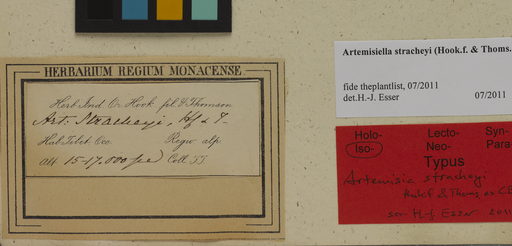 HERBARIUM REGIUM MONACENSE.
Herb. Ind. Or. Hook. fil. & Thomson
Art. Stracheyi, Hf & T.
Hab. Tibet Occ. Regio alp.
Alt. 15-17,000 ped Coll. TT
Artemisiella stracheyi (Hook.f. & Thoms.
fide theplantlist, 07/2011
det.H.-J. Esser 07/2011
Holo- Lecto- Syn-
Iso- Neo- Para
Typus
Artemisia stracheyi
Hook.f & Thoms ex
H.-J. Esser 2011